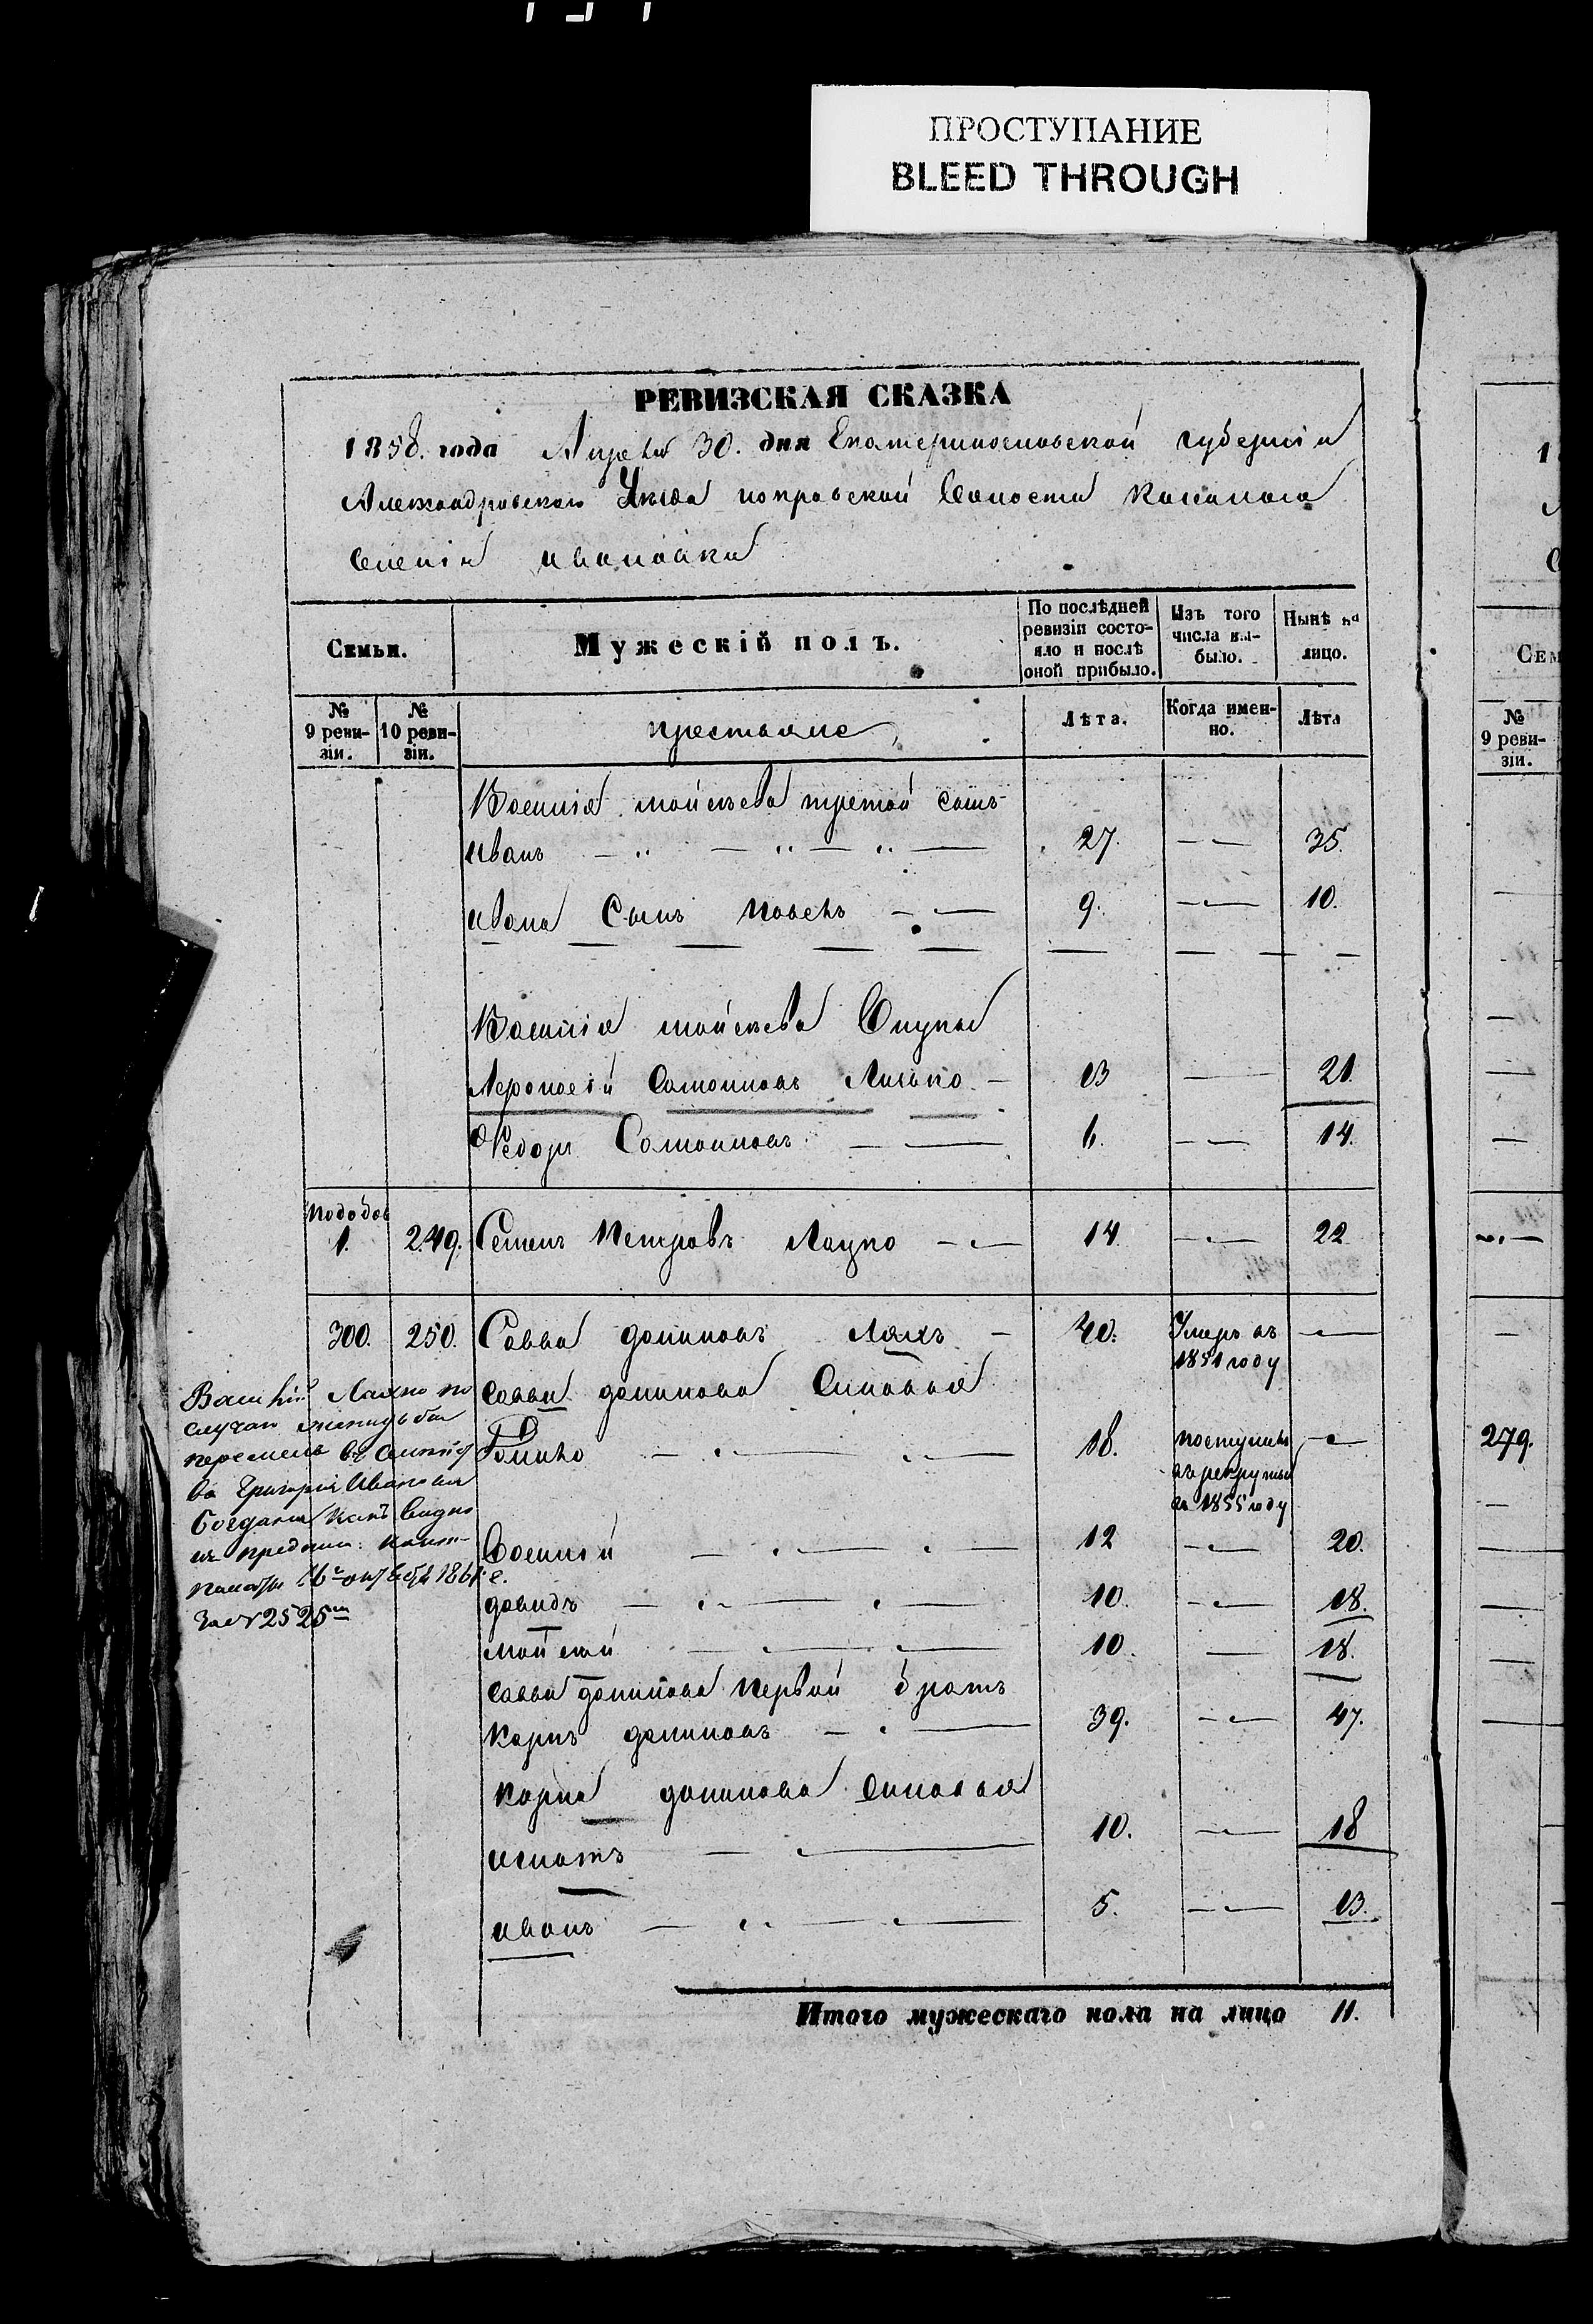 ПРОСТУПАНИЕ
BLEED THROUGH
РЕВИЗСКАЯ СКАЗКА
1858. года Апреля 30. дня Екатеринославской губерніи
Александровскаго Уѣзда покровской Волости казенаго
Селенія ивановки
Семьи.
Мужескій полъ.
По послѣдней ревизіи состояло и послѣ оной прибыло.
Изъ того числа выбыло.
Нынѣ на лицо.
№ 9 ревизіи.
№ 10 ревизіи.
крестьяне
Лѣта.
Когда именно.
Лѣта
Василія мойсѣева третой сынъ
иванъ 27. 35.
ивана Сынъ павелъ 9. 10.
Василія мойсѣева Внуки
Афонасій Самойловъ Лисько 13 21.
Федоръ Самойловъ 6. 14.
1. 249. Семенъ Петровъ Лацко 14. 22
300. 250. Савва даниловъ Ляхъ 40. Умеръ въ 1851 году
саввы данилова Синовья
Данило 18. поступилъ въ рекруты въ 1855 году
Василій 12 20.
давидъ 10. 18.
мойсей 10. 18.
саввы данилова первый братъ
карпъ даниловъ 39. 47.
карпа данилова синовья
игнатъ 10. 18
иванъ 5. 13.
Василій по
случаю женидьбы
въ
Григорія Иванова
Богдана какъ видно
изъ
октября 1861 г.
за № 2525
Итого мужескаго пола на лицо 11.
СЕМ
№ 9 ревизіи.
279.